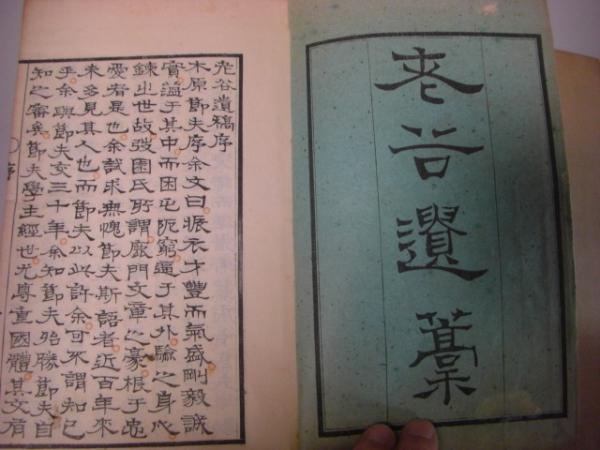 老谷遺藁
老谷遺稿序
木原節夫序余文曰振衣才豐而氣盛剛毅誠
實溢于其中而困屯阨窮逼于其外驗之身心
鍊出世故弢園氏所謂門文章之豪根于忠
愛者是也余試求無愧節夫斯語者近百年來
未多見其人也而節夫以此許余可不謂知己
乎余與節夫交三十年余知節夫殆勝節夫自
知之審矣節夫學主經世尤尊重國體其文有
序